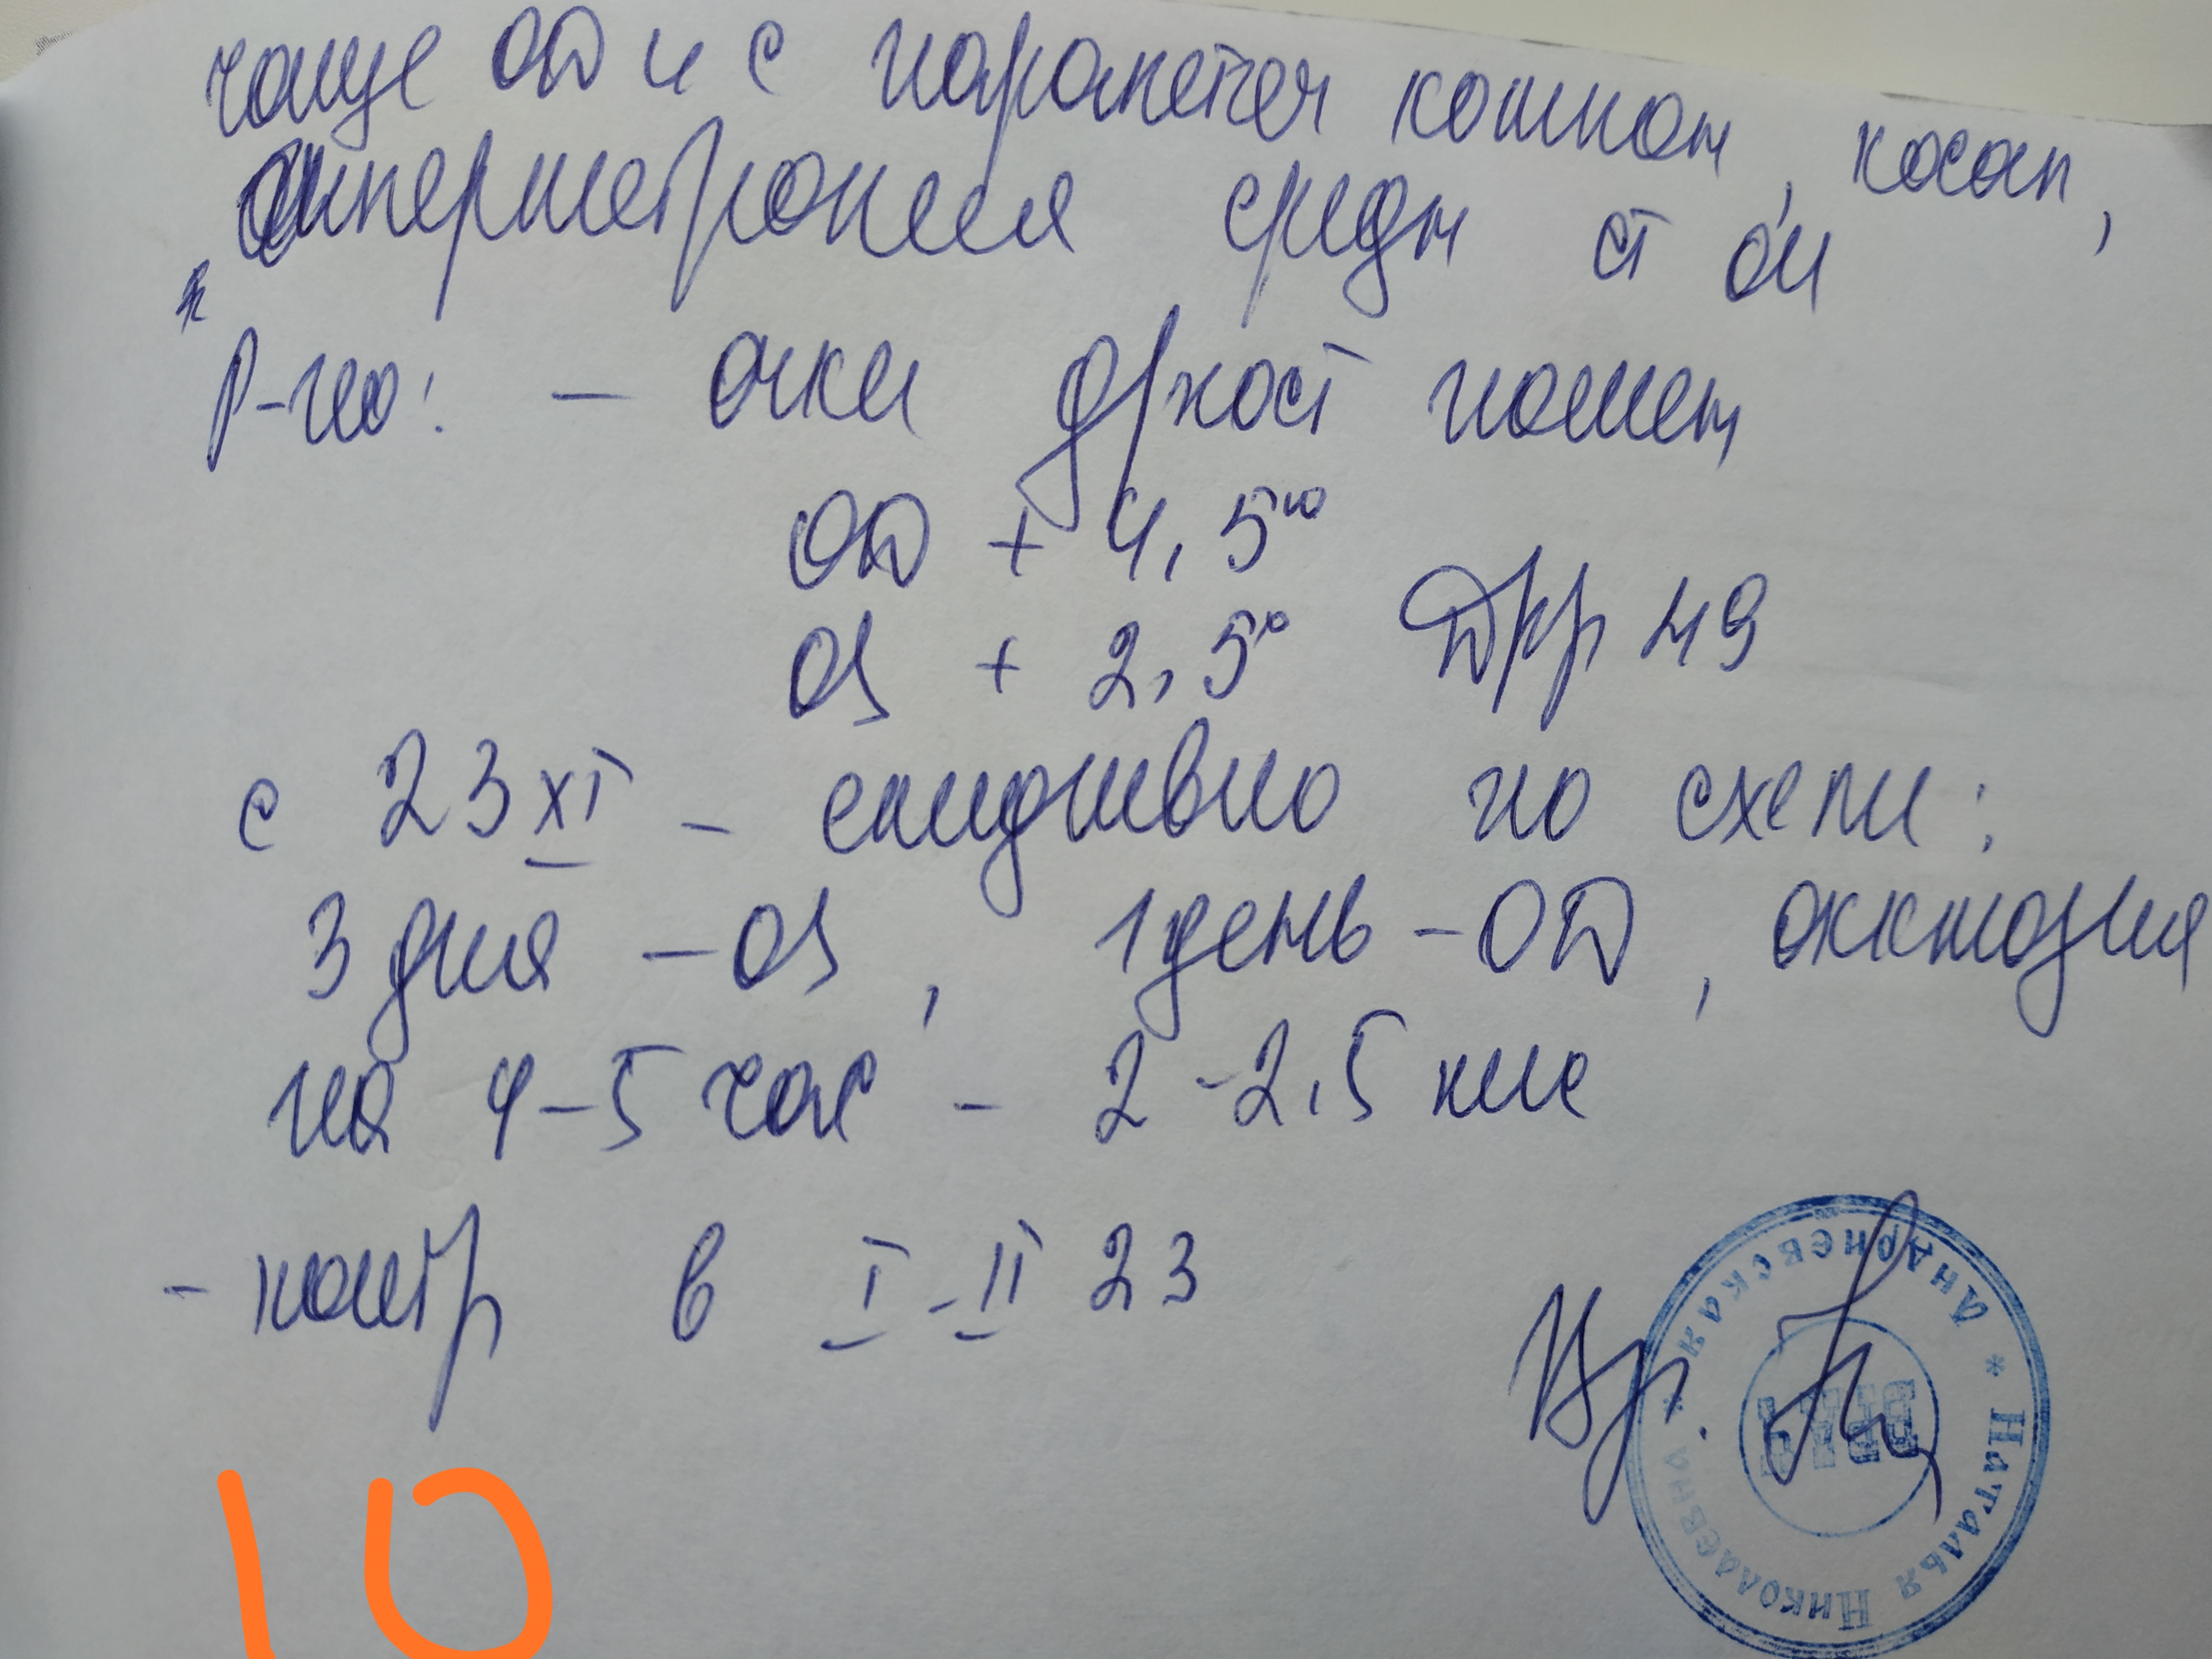 чаще OD и с паралетеч компон, косогл,
гиперметропия средн ст ои
Р-но: - очки д/пост ношен
OD + 4,5
OS + 2,5 Дpp 49
с 23 XI - ежедневно по схеме:
3 дня - OS, 1 день - OD, окклюзия
на 4-5 час - 2-2,5 мес
- контр в I-II 23
Вр.
Андриевская * Наталья Николаевна *
ВРАЧ
10